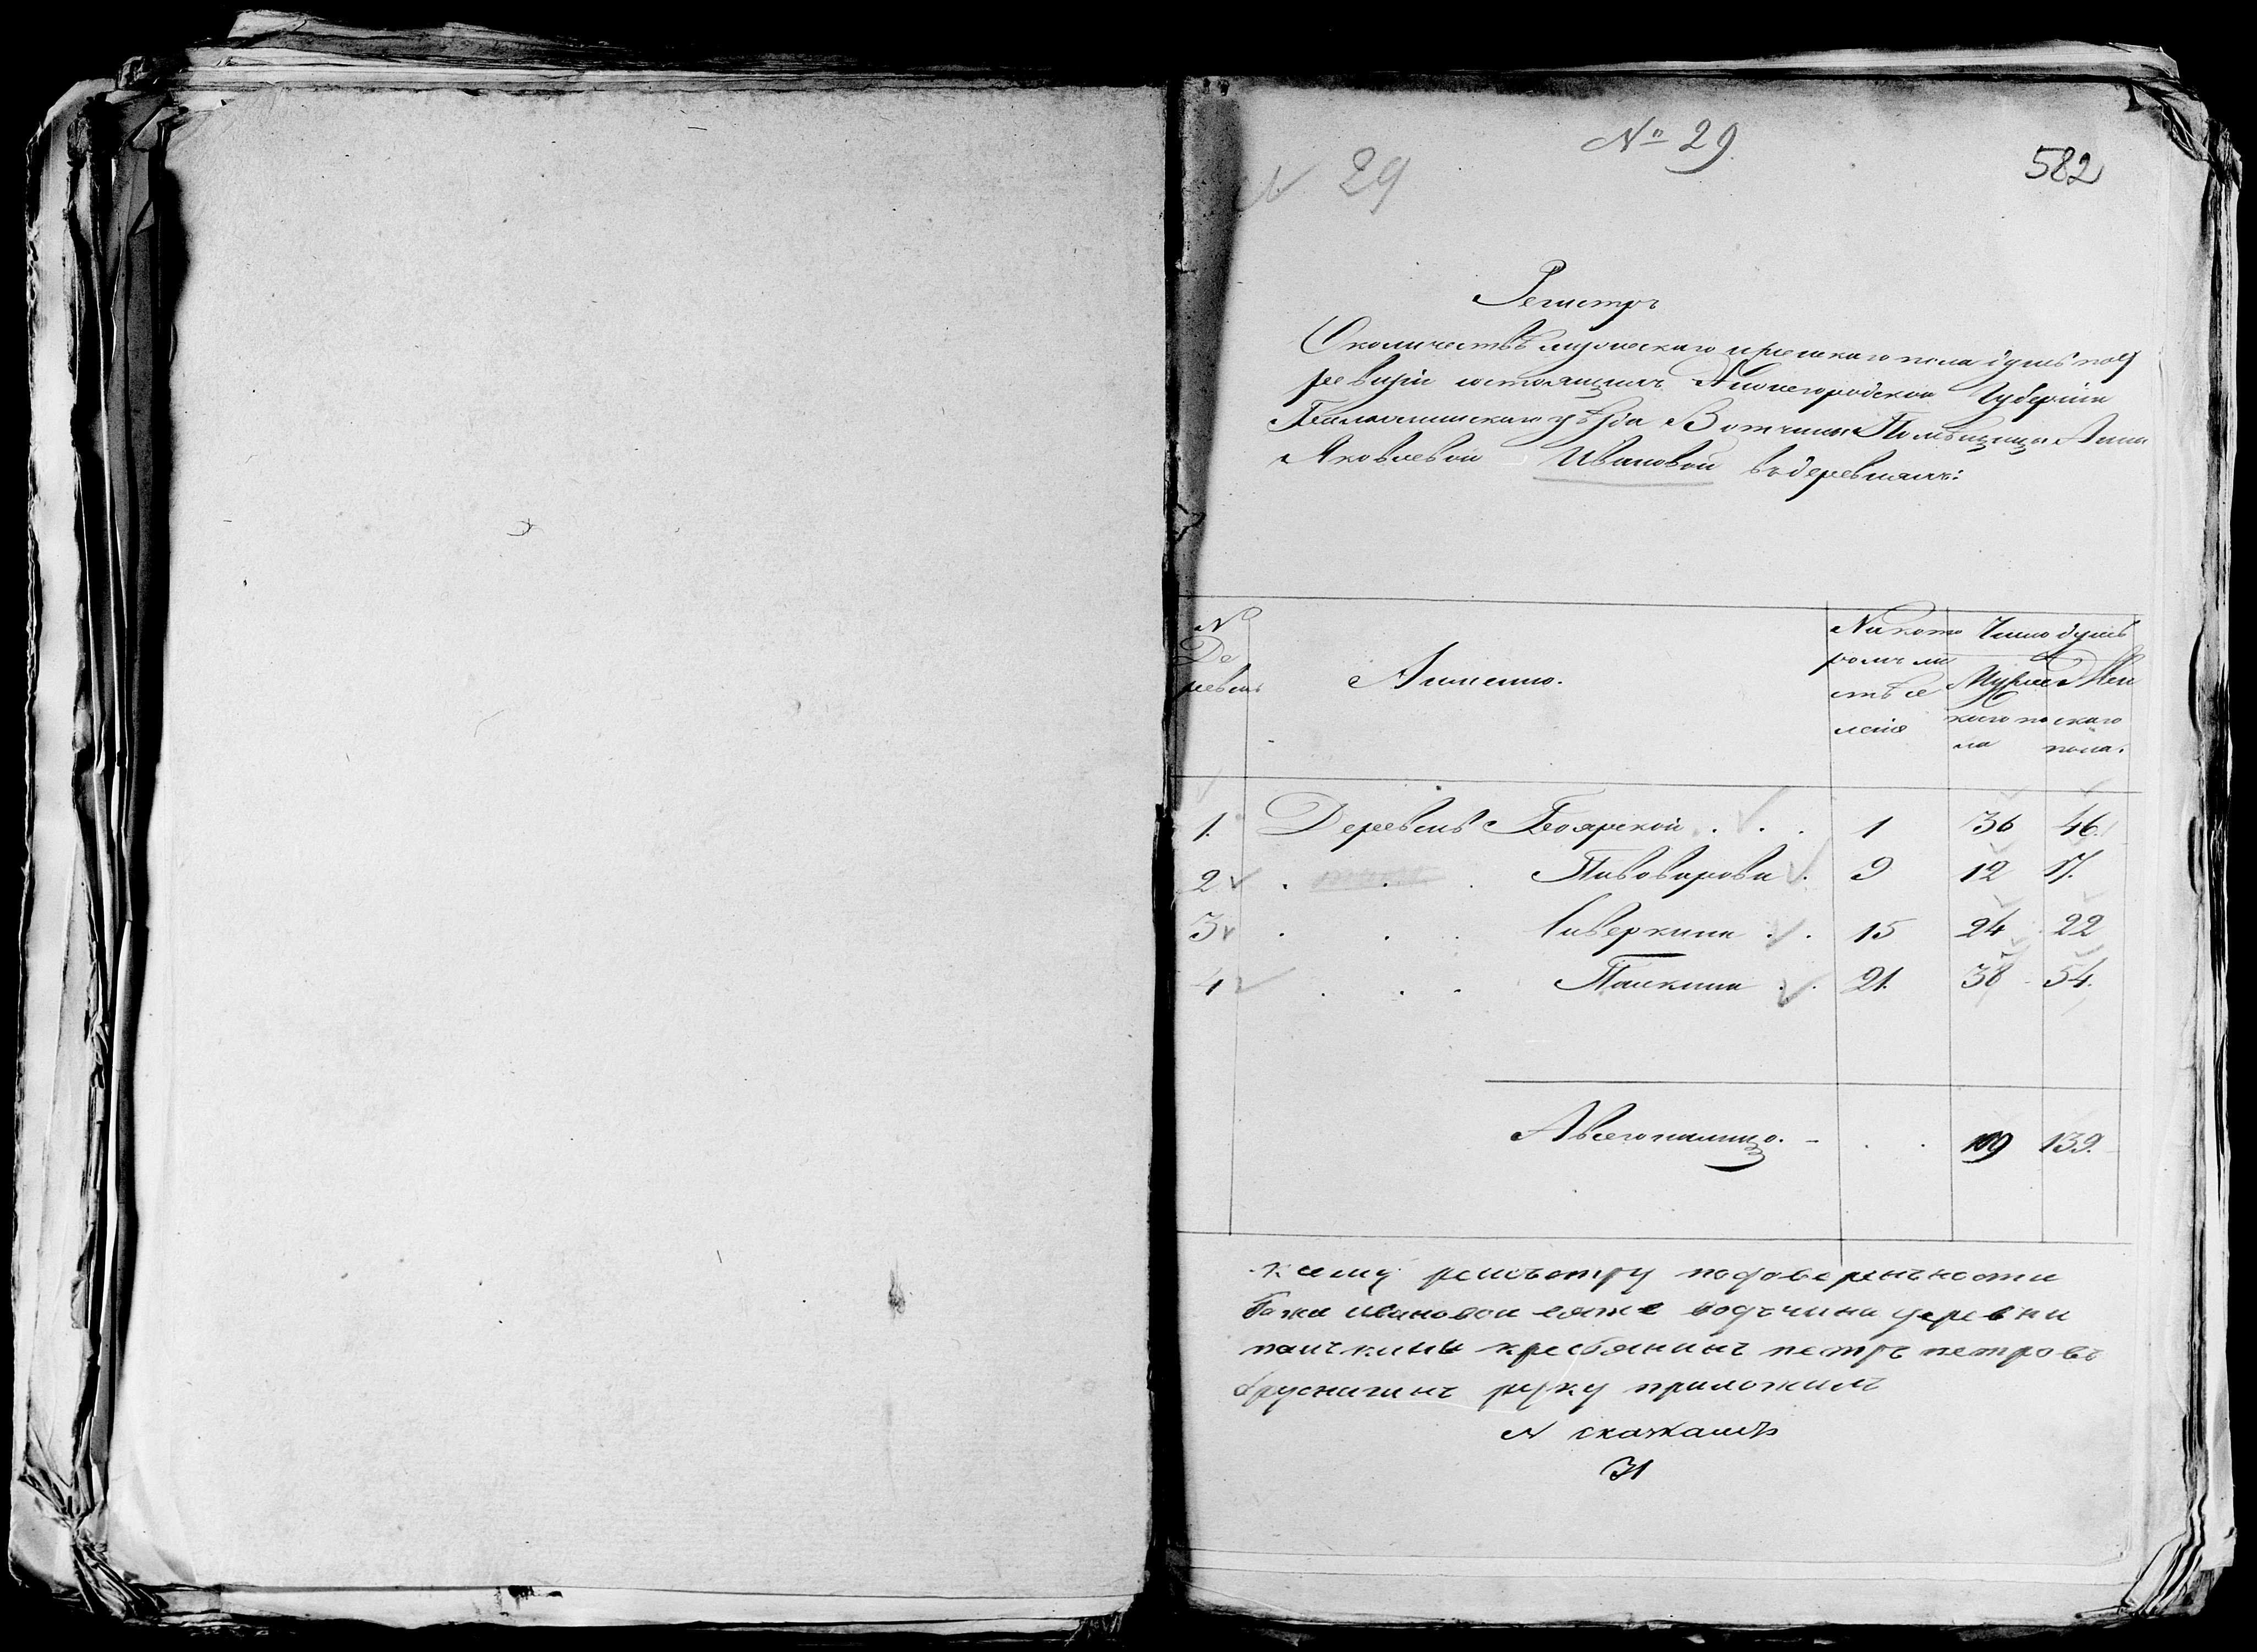 № 29.
N 29
582
Регистръ
О количествѣ мужескаго и женскаго пола душъ по 9
ревизіи состоящихъ Нижегородской Губерніи
Балахнинскаго уѣзда В отчине Помѣщицы Анны
Яковлевой Ивановой въ деревняхъ:
№ Деревень
Имянно.
На котором листѣ селеніе
Число душъ
Мужескаго пола
Женскаго пола.
1. Деревень Боярской . . . 1 36 46.
2 . . . Пивоварова . 9 12 17.
3 . . . Аверкина . . 15 24 22
4 . . . Палкина . . 21. 38 54.
А всего налицо. - . . 109 139.
к сему регистру подоверенности
Гжи Ивановой еяже водчины деревни
палкины кресьянинъ петръ петровъ
брусничинъ руку приложилъ